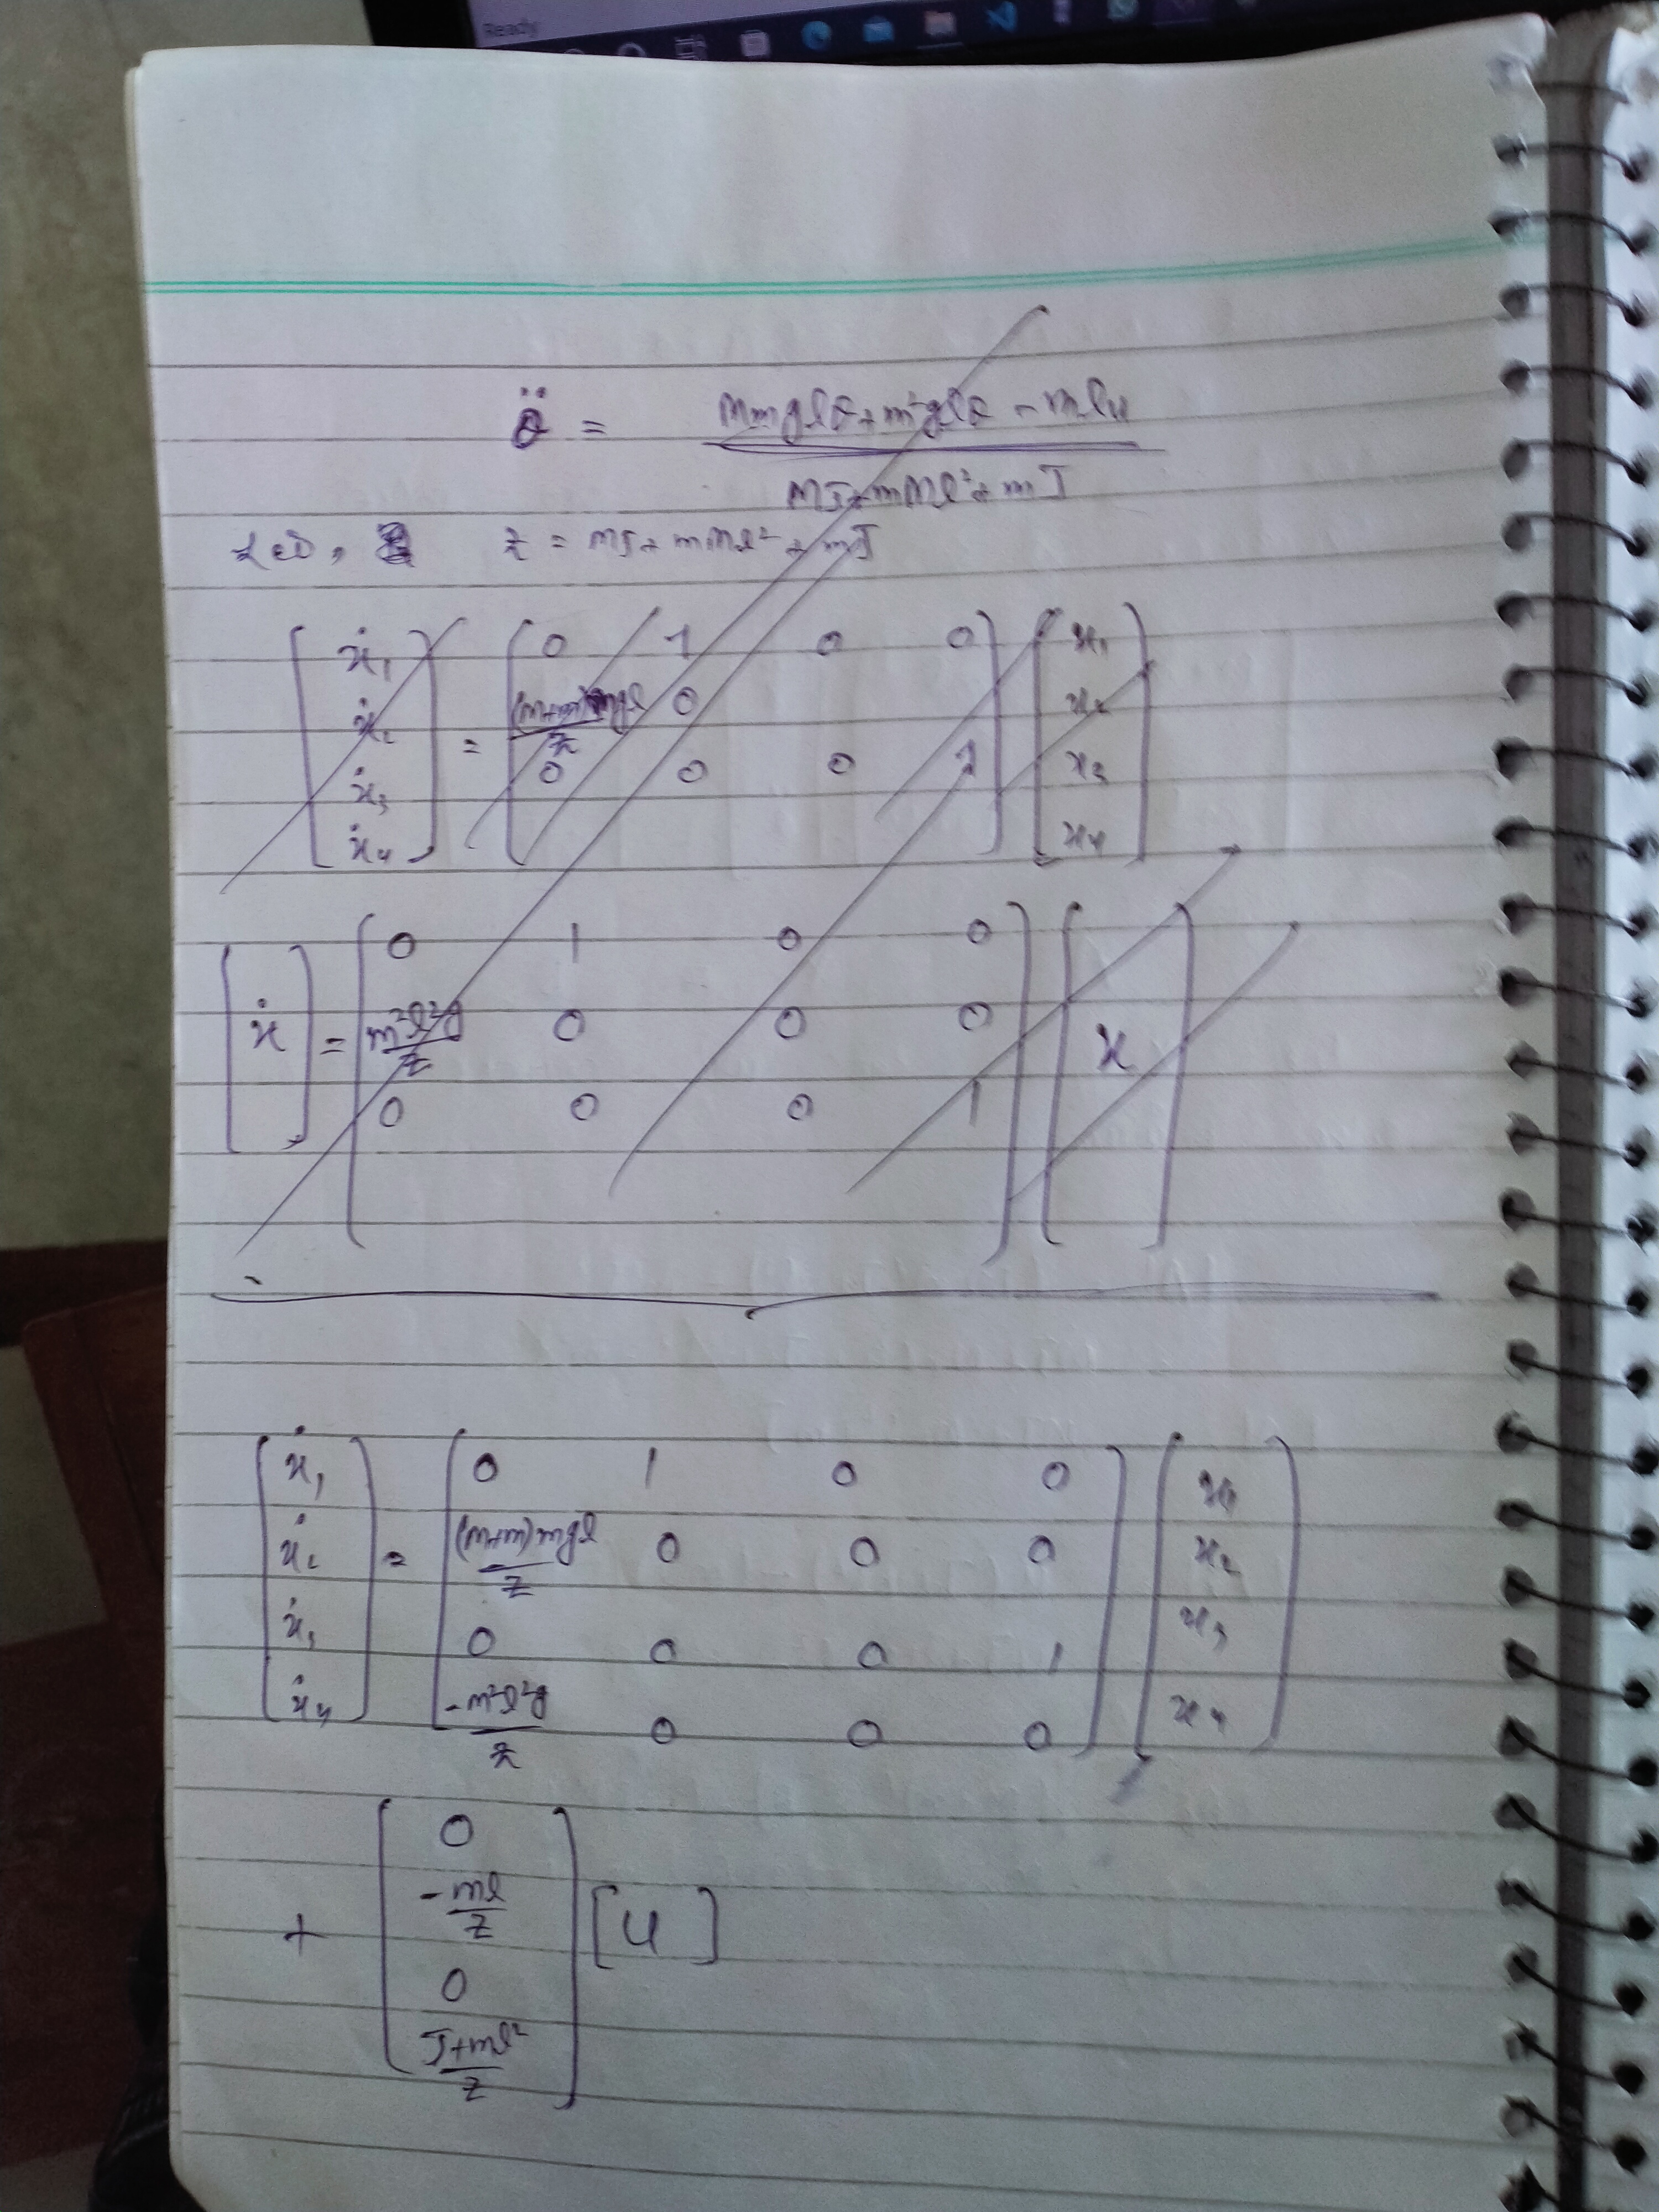 Ready
θ̈ = (Mmglθ + m²glθ - mlu) / (MJ + mMl² + mJ)
Let, z = MJ + mMl² + mJ
[ẋ₁ ẋ₂ ẋ₃ ẋ₄] = [0 1 0 0; (M+m)mgl/z 0; 0 0 0 1] [x₁ x₂ x₃ x₄]
[ẋ] = [0 1 0 0; m²l²g/z 0 0 0; 0 0 0 1] [x]
[ẋ₁ ẋ₂ ẋ₃ ẋ₄] = [0 1 0 0; (M+m)mgl/z 0 0 0; 0 0 0 1; -m²l²g/z 0 0 0] [x₁ x₂ x₃ x₄]
+ [0; -ml/z; 0; J+ml²/z] [u]